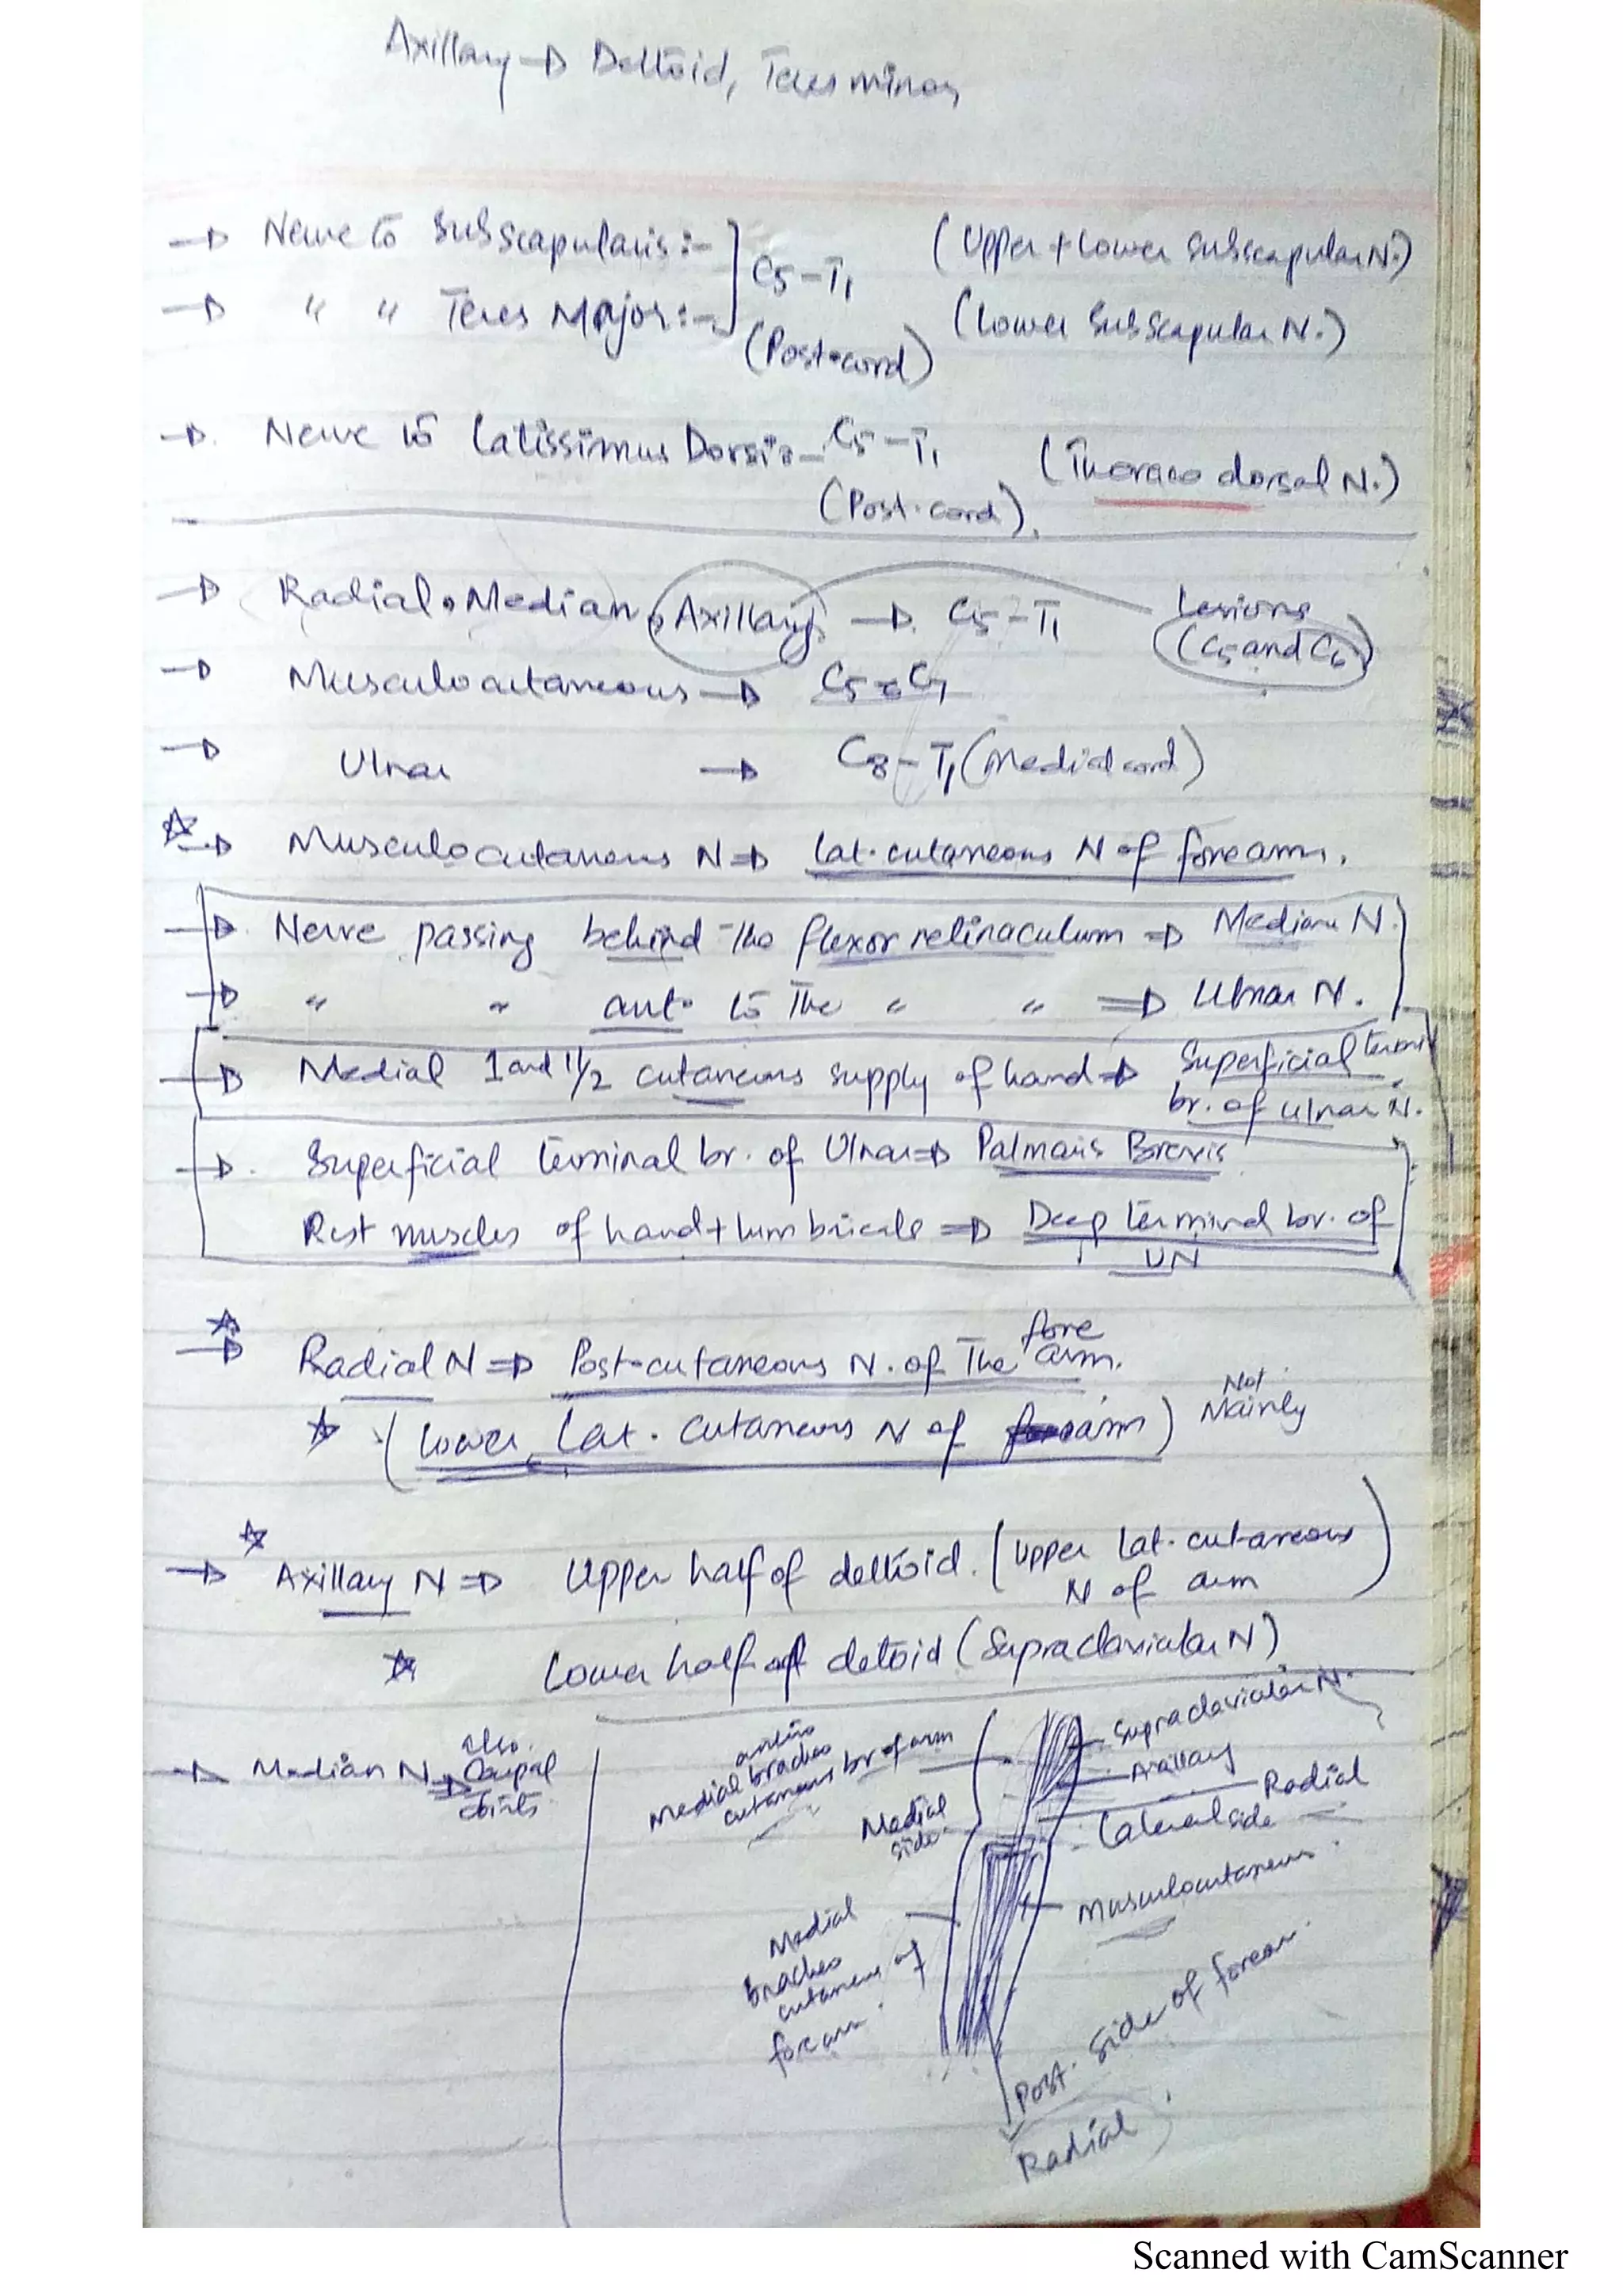 Axillary → Deltoid, Teres minor
→ Nerve to Subscapularis :- ] C5-T1 (Upper + Lower Subscapular N.)
→ " " Teres Major :- ] (Post. cord) (Lower Subscapular N.)
→ Nerve to Latissimus Dorsi :- C5-T1 (Thoraco dorsal N.)
(Post. cord).
→ Radial, Median, Axillary → C5-T1 Lesions
(C5 and C6)
→ Musculocutaneous → C5-C7
→ Ulnar → C8-T1 (Medial cord)
☆→ Musculocutaneous N ⇒ Lat. cutaneous N of forearm.
→ Nerve passing behind the flexor retinaculum ⇒ Median N.
→ " " ant. to The " " ⇒ Ulnar N.
→ Medial 1 and 1/2 cutaneous supply of hand ⇒ Superficial
br. of ulnar N.
→ Superficial terminal br. of Ulnar ⇒ Palmaris Brevis
Rest muscles of hand + lumbricals ⇒ Deep terminal br. of
UN
☆⇒ Radial N ⇒ Post. cutaneous N. of The fore arm.
☆ (Lower Lat. cutaneous N of arm) Not Mainly
→ ☆ Axillary N ⇒ Upper half of deltoid. (Upper Lat. cutaneous
N of arm)
☆ Lower half of deltoid (Supraclavicular N)
→ Median N ⇒
Medial bracheo
cutaneous br of arm
Supraclavicular N.
Axillary
Radial
Medial
side
Lateral side
Musculocutaneous
Medial
bracheo
cutaneous of
forearm
Post. side of forearm.
Radial
Scanned with CamScanner